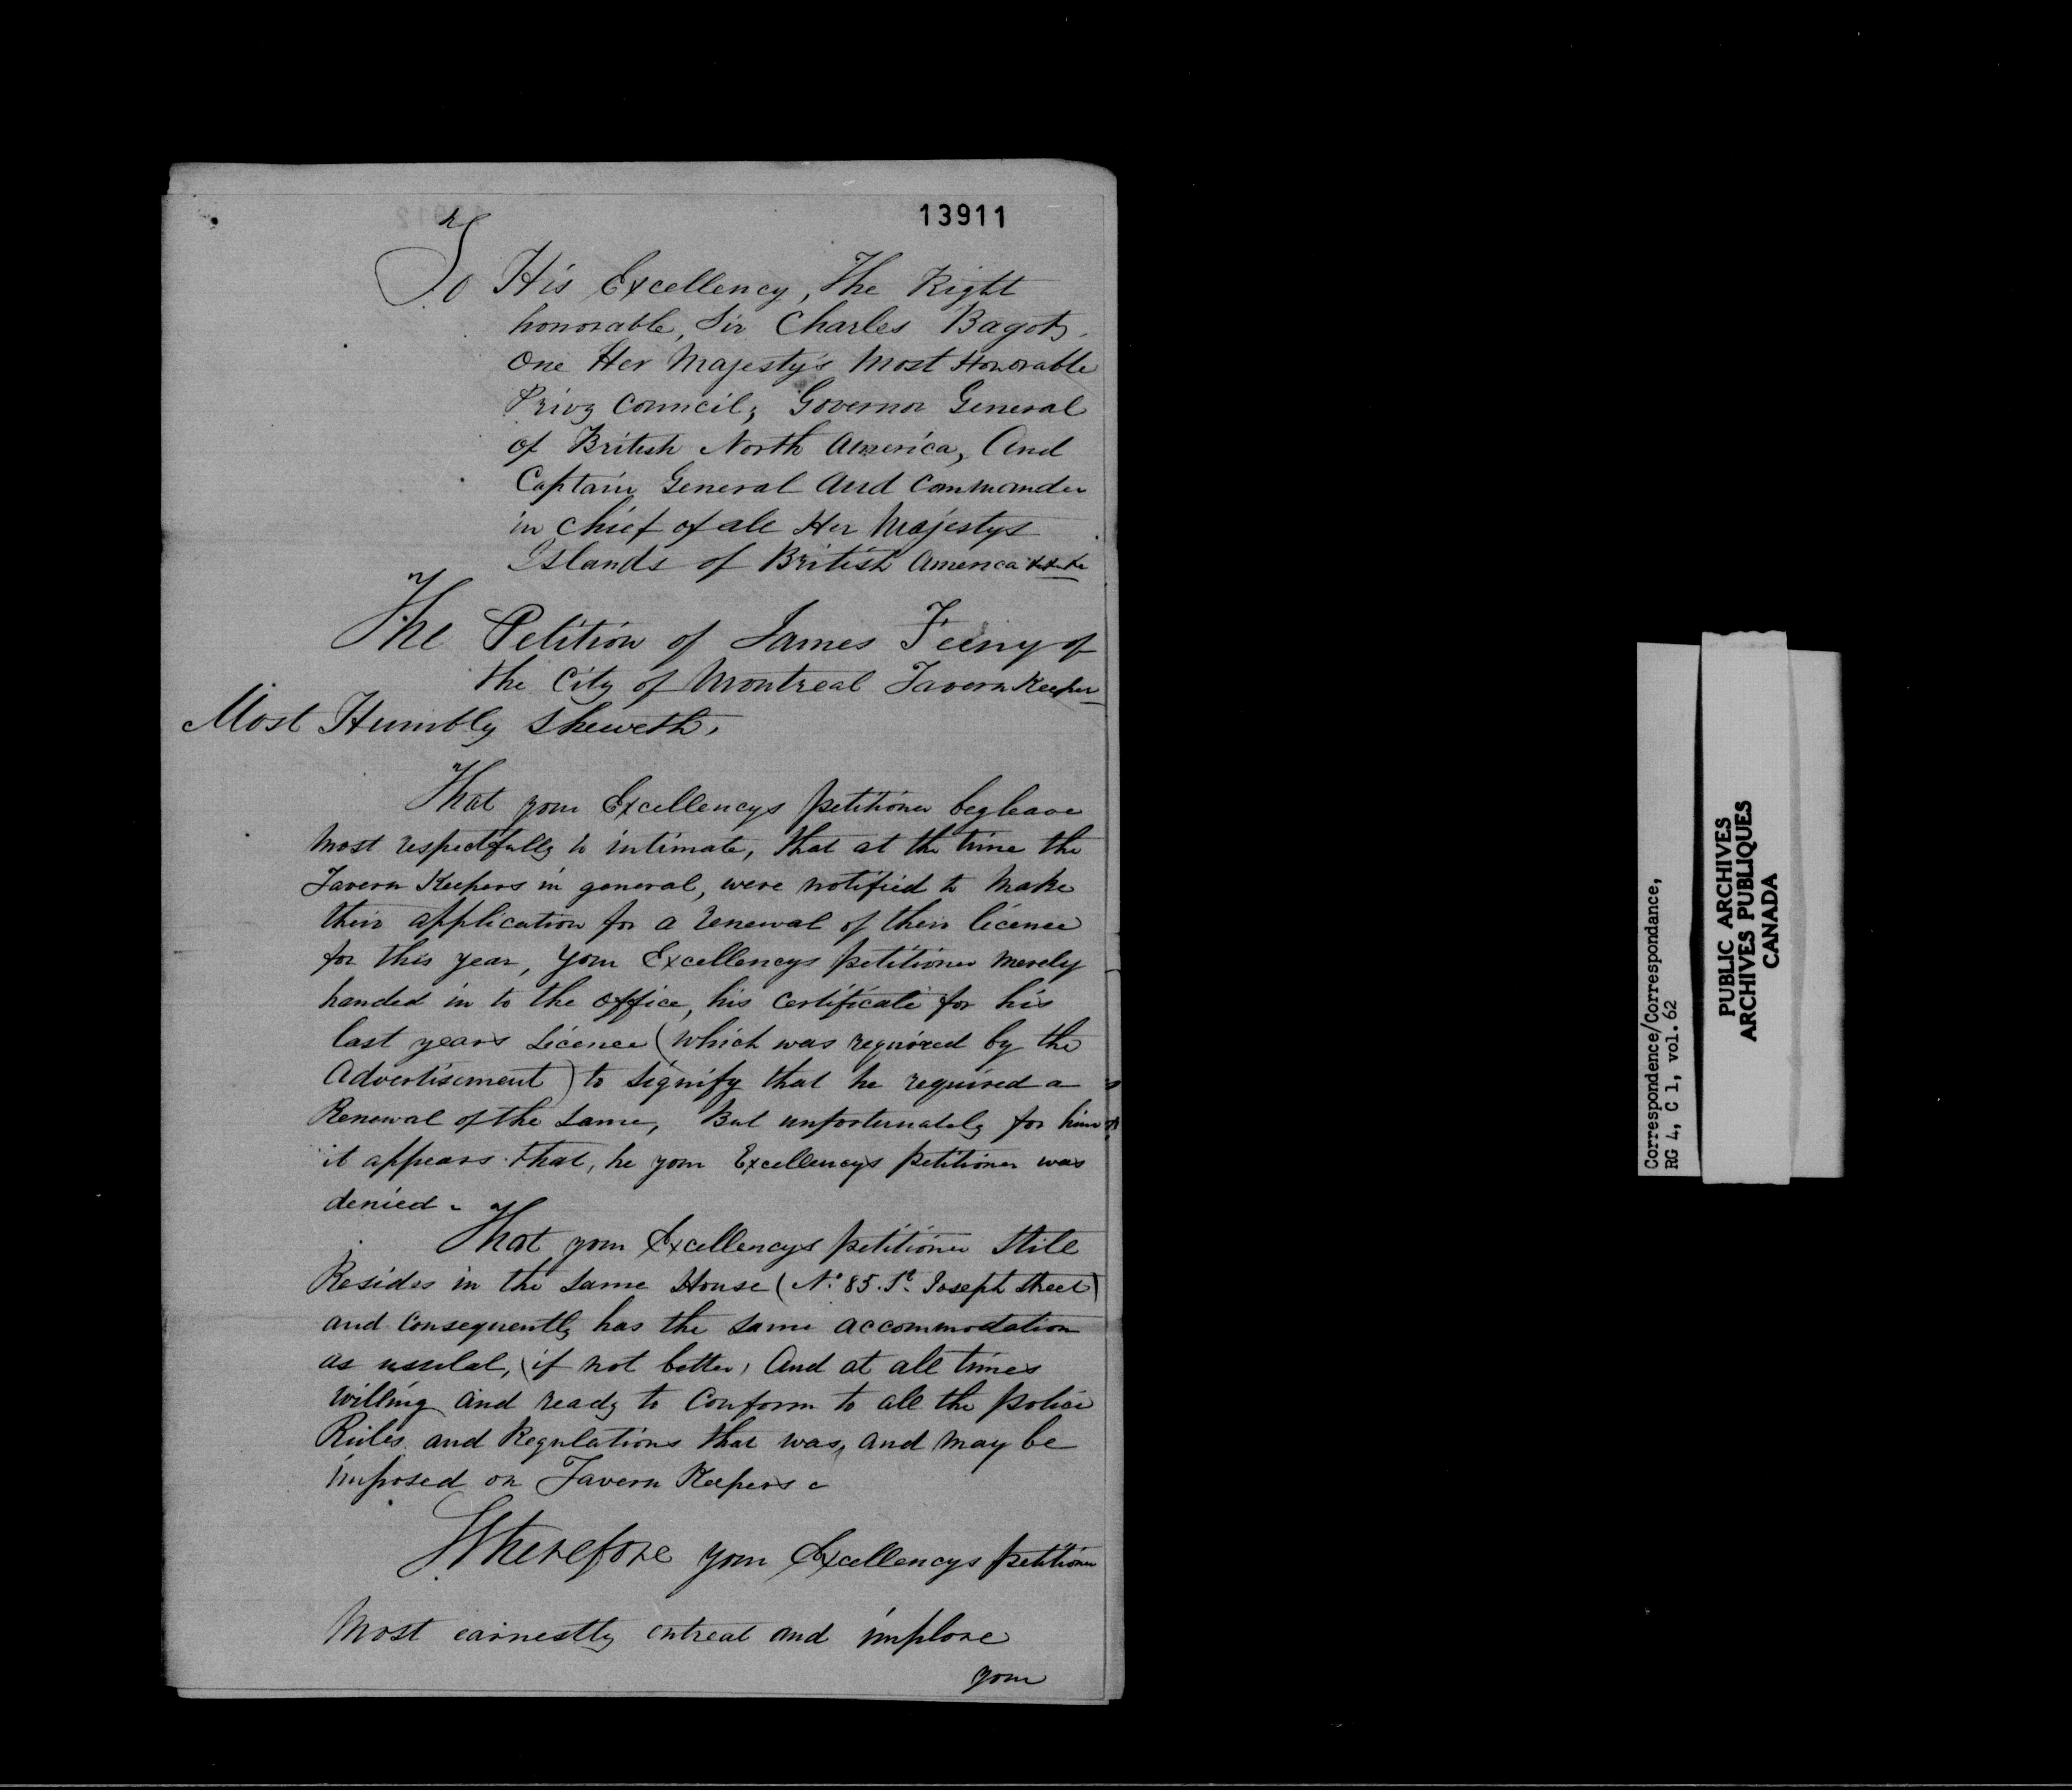 13911
To His Excellency, The Right
honorable, Sir Charles Bagot,
One Her Majesty's Most Honorable
Privy Council, Governor General
of British North America, And
Captain General And Commander
in Chief of all Her Majestys
Islands of British America
The Petition of James Feeny of
the City of Montreal Tavern Keeper
Most Humbly Sheweth,
That your Excellencys petitioner beg leave
Most respectfully to intimate, that at the time the
Tavern Keepers in general, were notified to Make
their application for a renewal of their licence
for this year, Your Excellencys petitioner merely
handed in to the office, his Certificate for his
last years Licence (which was required by the
Advertisement) to signify that he required a
Renewal of the Same, But unfortunately for him
it appears that, he your Excellencys petitioner was
denied.
That your Excellencys petitioner Still
Resides in the Same House (No. 85. St. Joseph Street)
and Consequently has the Same accommodation
as ussulal, (if not better, And at all times
Willing and ready to Conform to all the police
Rules and Regulations that was, and May be
imposed on Tavern Keepers
Wherefore your Excellencys petitioner
Most earnestly entreat and implore
your
Correspondence/Correspondance,
RG 4, C 1, vol. 62
PUBLIC ARCHIVES
ARCHIVES PUBLIQUES
CANADA